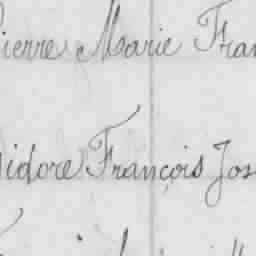 Pierre Marie Fran
sidore François Jos